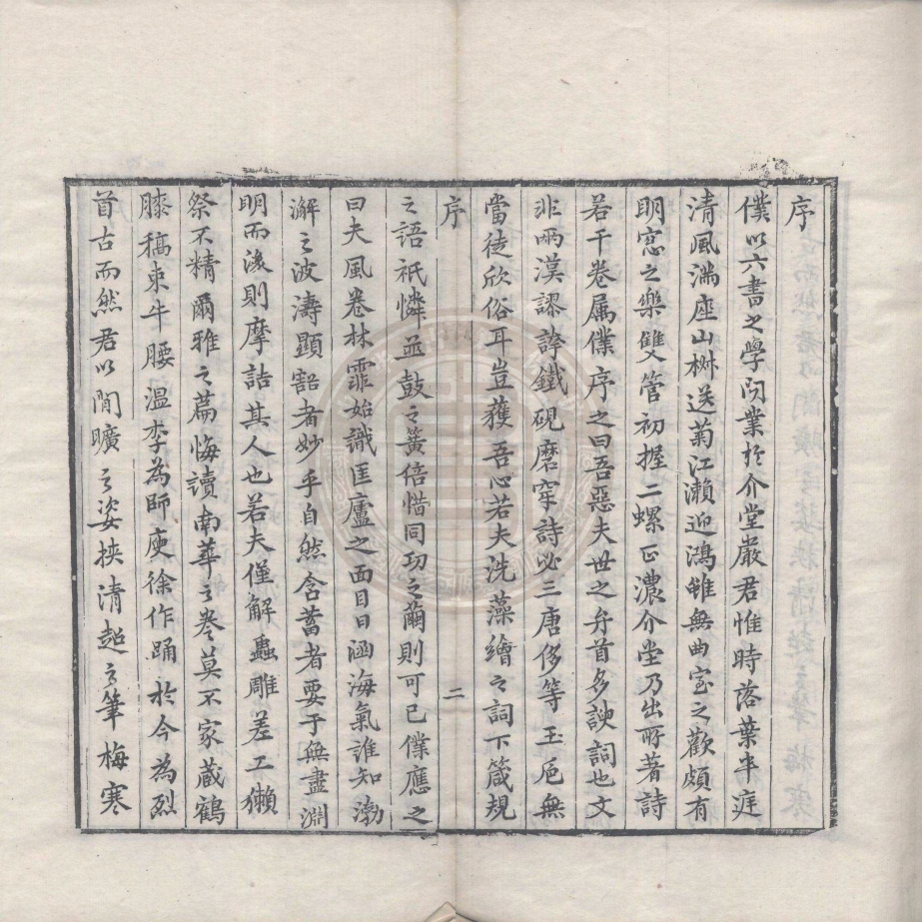 序
僕以六書之學問業於介堂嚴君惟時落葉半庭
清風滿座山樹送菊江瀨迎鴻雖無曲室之歡頗有
明窓之樂雙管初握二螺正濃介堂乃出所著詩
若干卷属僕序之曰吾惡夫世之弁首多諛詞也文
非兩漢謬誇鐵硯磨穿詩必三唐侈等玉巵無
當徒欣俗耳豈獲吾心若夫洗藻繪之詞下箴規
序
二
之語祇憐並鼓之簧倍惜同功之繭則可已僕應之
曰夫風卷林霏始識匡廬之面目涵海氣誰知渤
澥之波濤顯豁者妙乎自然含蓄者要于無盡淵
明而後則摩詰其人也若夫僅解蟲雕差工獺
祭不精爾雅之篇悔讀南華之卷莫不家藏鶴
膝稿束牛腰溫李為師庾徐作踊於今為烈
首古而然君以閒曠之姿挾清超之筆梅寒